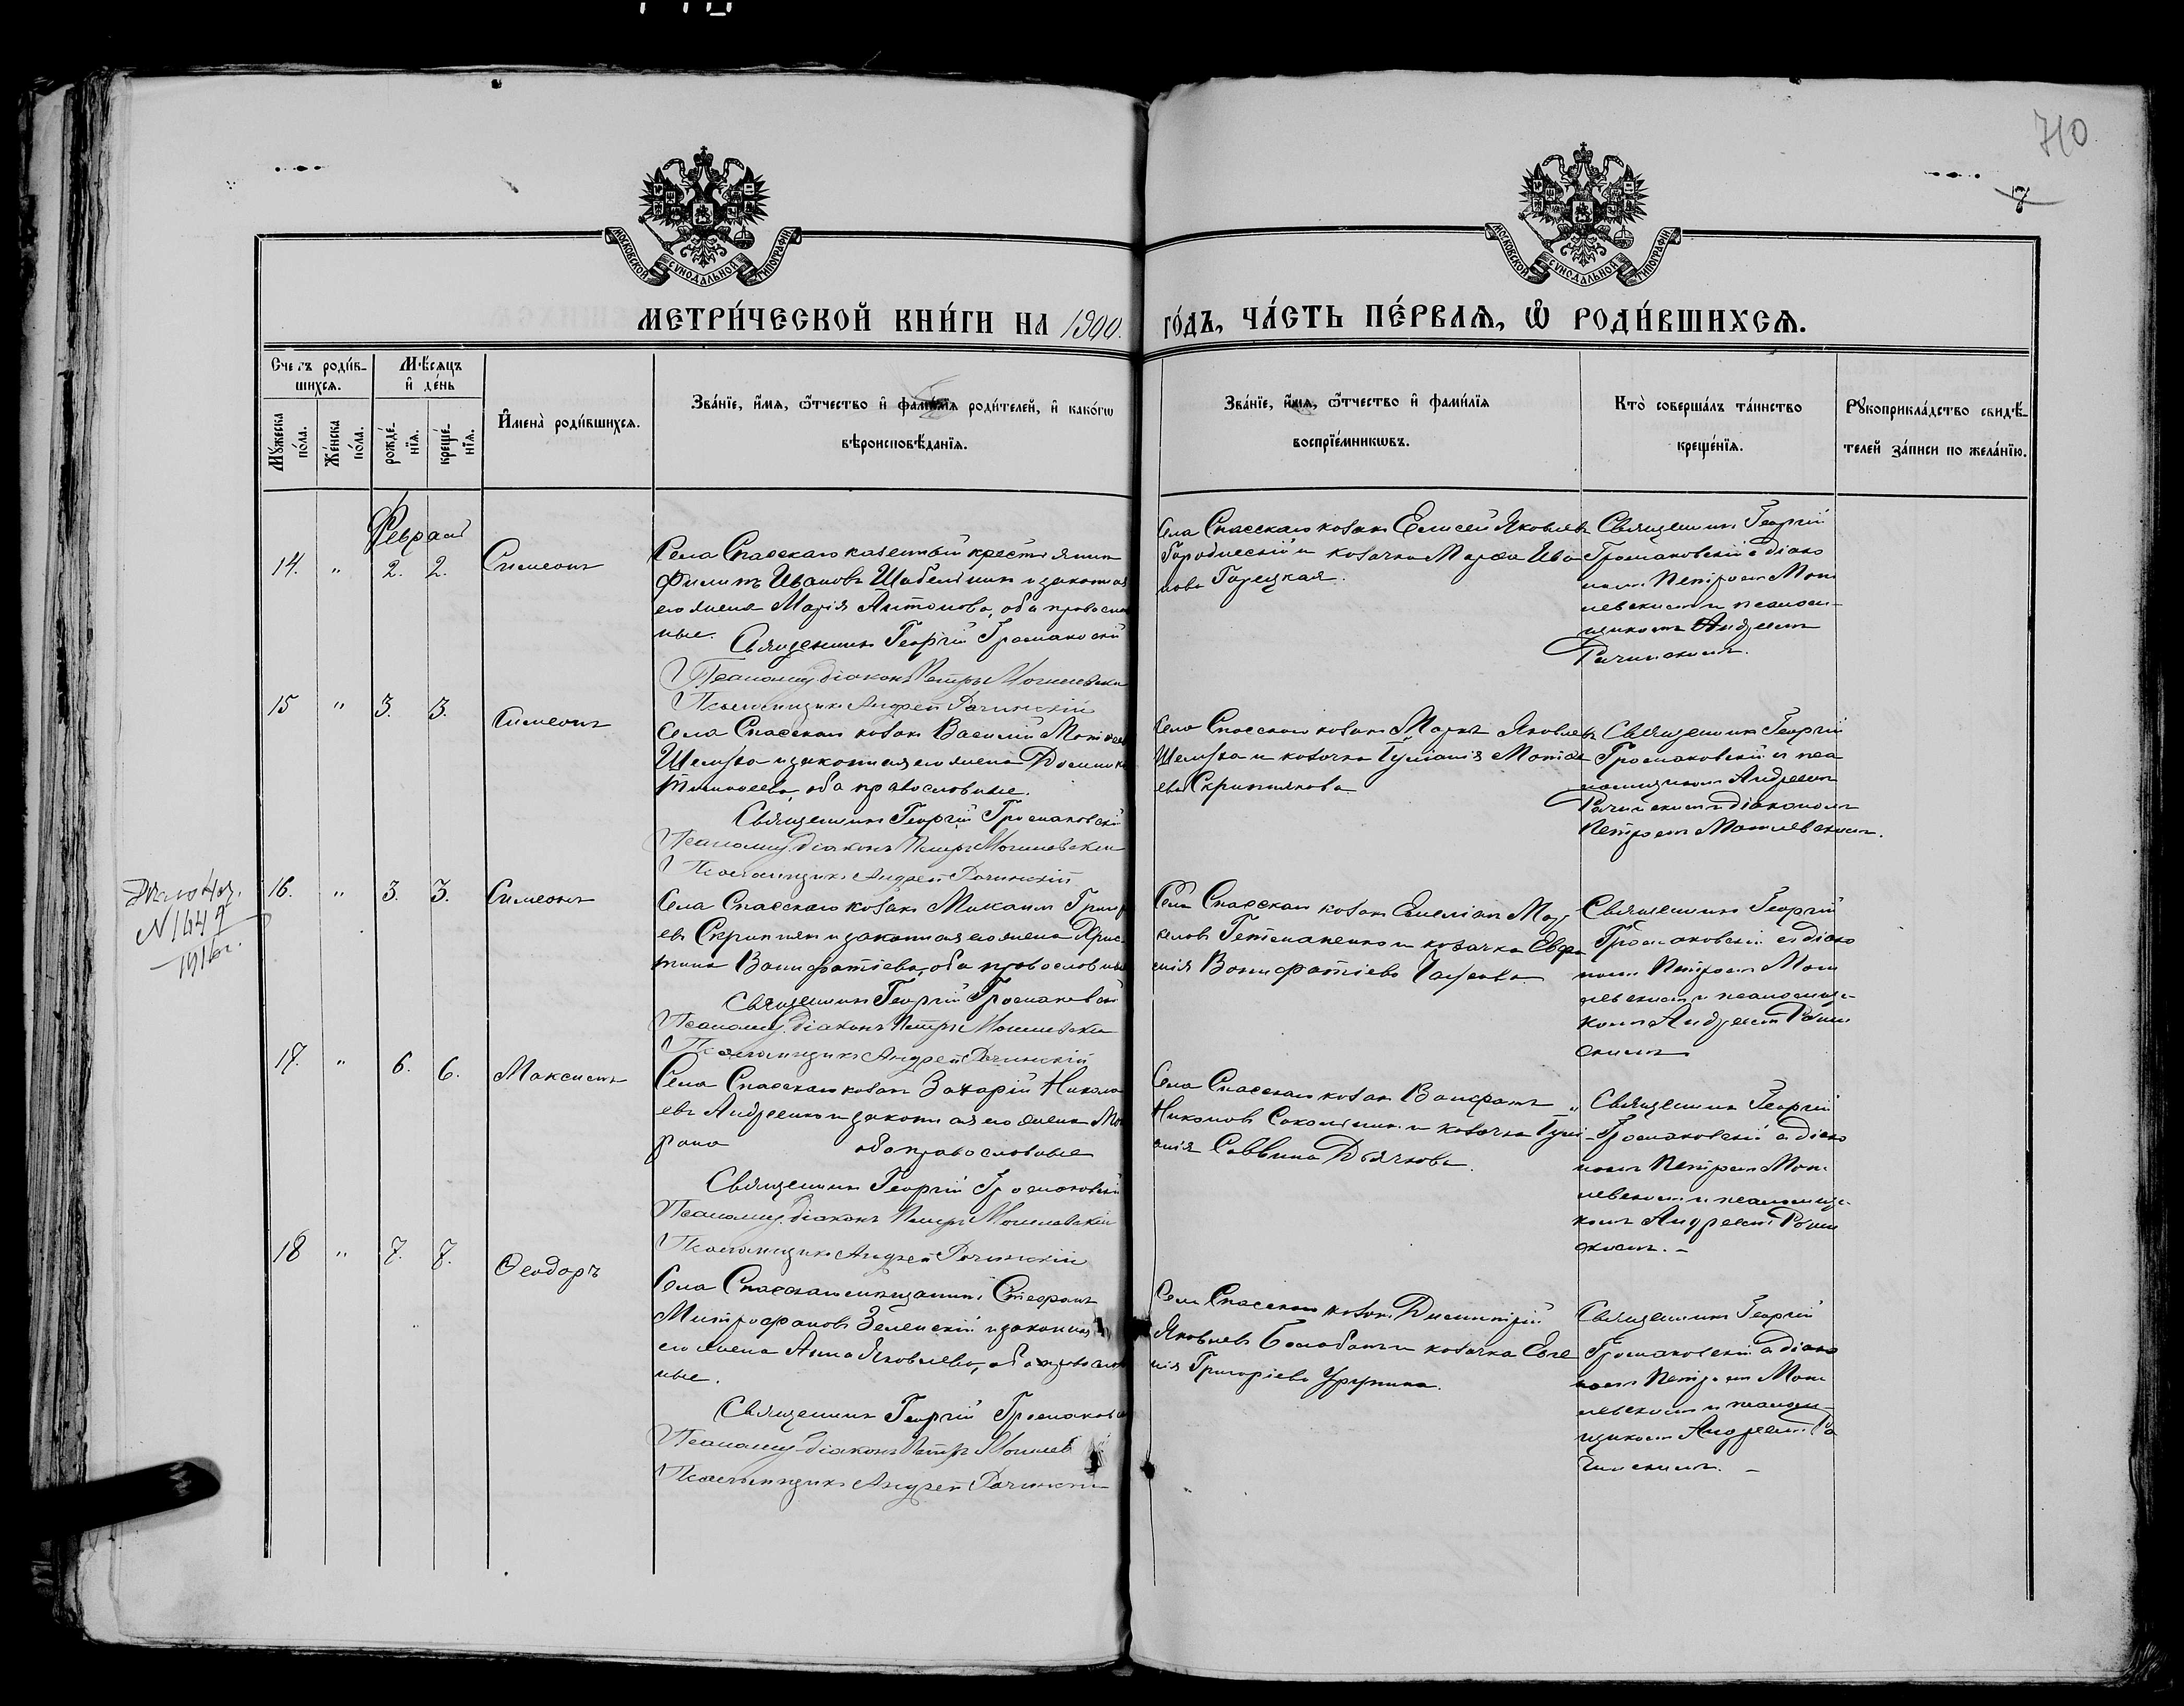 710
7
МОСКОВСКОЙ СѴНОДАЛЬНОЙ ТИПОГРАФІИ
МОСКОВСКОЙ СѴНОДАЛЬНОЙ ТИПОГРАФІИ
МЕТРИ́ЧЕСКОЙ КНИ́ГИ НА 1900. ГО́ДЪ, ЧА́СТЬ ПЕ́РВАѦ, Ѡ РОДИ́ВШИХСѦ.
Счетъ роди́в-
шихсѧ.
Мѣ́сѧцъ
и҆ де́нь
Мꙋ́жеска по́ла.
Же́нска по́ла.
рожде́-нїѧ.
креще́-нїѧ.
И҆мена̀ роди́вшихсѧ.
Зва́нїе, и҆́мѧ, ѻ҆́тчество и҆ фами́лїѧ роди́телей, и҆ како́гѡ
вѣроисповѣ́данїѧ.
Зва́нїе, и҆́мѧ, ѻ҆́тчество и҆ фами́лїѧ
воспрїе́мникѡвъ.
Кто̀ соверша́лъ та́инство
креще́нїѧ.
Рꙋкоприкла́дство свидѣ́-
телей за́писи по жела́нїю.
Февраль
14. " 2. 2. Симеонъ
Села Спасскаго казенный крестьянинъ
Филиппъ Ивановъ Шабельникъ и законная
его жена Марія Антонова, оба православ
ные.
Священникъ Георгій Громаковскій
Псаломщ. діаконъ Петръ Могилевскій
Псаломщикъ Андрей Рачинскій
Села Спасскаго козакъ Елисей Яковлевъ
Городнескій и козачка Марѳа Ива
нова Горецкая.
Священникъ Георгій
Громаковскій с діако
номъ Петромъ Моги
левскимъ и псаломъ-
щикомъ Андреемъ
Рачинскимъ.
15 " 3. 3. Симеонъ
Села Спасскаго козакъ Василій
и законная его жена
оба православные.
Священникъ Георгій Громаковскій
Псаломщ. діаконъ Петръ Могилевскій
Псаломщикъ Андрей Рачинскій
Села Спасскаго козакъ Маркъ Яковлевъ
и козачка Іуліанія Матѳе
ева Скрипникова
Священникъ Георгій
Громаковскій и пса
ломщикомъ Андреемъ
Рачинскимъ и діакономъ
Петромъ Могилевскимъ.
№ 1647
1916 г.
16. " 3. 3. Симеонъ
Села Спасскаго козакъ Михаилъ Григорь
евъ Скрипникъ и законная его жена Хрис
тина Вонифатіева, оба православные
Священникъ Георгій Громаковскій
Псаломщ. діаконъ Петръ Могилевскій
Псаломщикъ Андрей Рачинскій
Села Спасскаго козакъ Емеліанъ Мар
келовъ Гетманенко и козачка Евфи
мія Вонифатіева
Священникъ Георгій
Громаковскій с діако
номъ Петромъ Моги
левскимъ и псаломщи-
комъ Андреемъ Рачин
скимъ
17. " 6. 6. Максимъ
Села Спасскаго козакъ Захарій Никола
евъ Андреенко и законная его жена Мат
рона оба православные
Священникъ Георгій Громаковскій
Псаломщ. діаконъ Петръ Могилевскій
Псаломщикъ Андрей Рачинскій
Села Спасскаго козакъ
и козачка Іулі
анія Саввина Дьячкова.
Священникъ Георгій
Громаковскій с діако
номъ Петромъ Моги
левскимъ и псаломщи-
комъ Андреемъ Рачин
скимъ. –
18 " 7. 7. Ѳеодоръ
Села Спасскаго мѣщанинъ Стефанъ
Митрофановъ Зеленскій и законная
его жена Анна Яковлева, оба православ
ные.
Священникъ Георгій Громаковскій
Псаломщ. діаконъ Петръ Могилев
Псаломщикъ Андрей Рачинскій
Села Спасскаго козакъ Димитрій
Яковлевъ и козачка Евге
нія Григоріева
Священникъ Георгій
Громаковскій с діако
номъ Петромъ Моги
левскимъ и псаломъ-
щикомъ Андреемъ Ра
чинскимъ. –